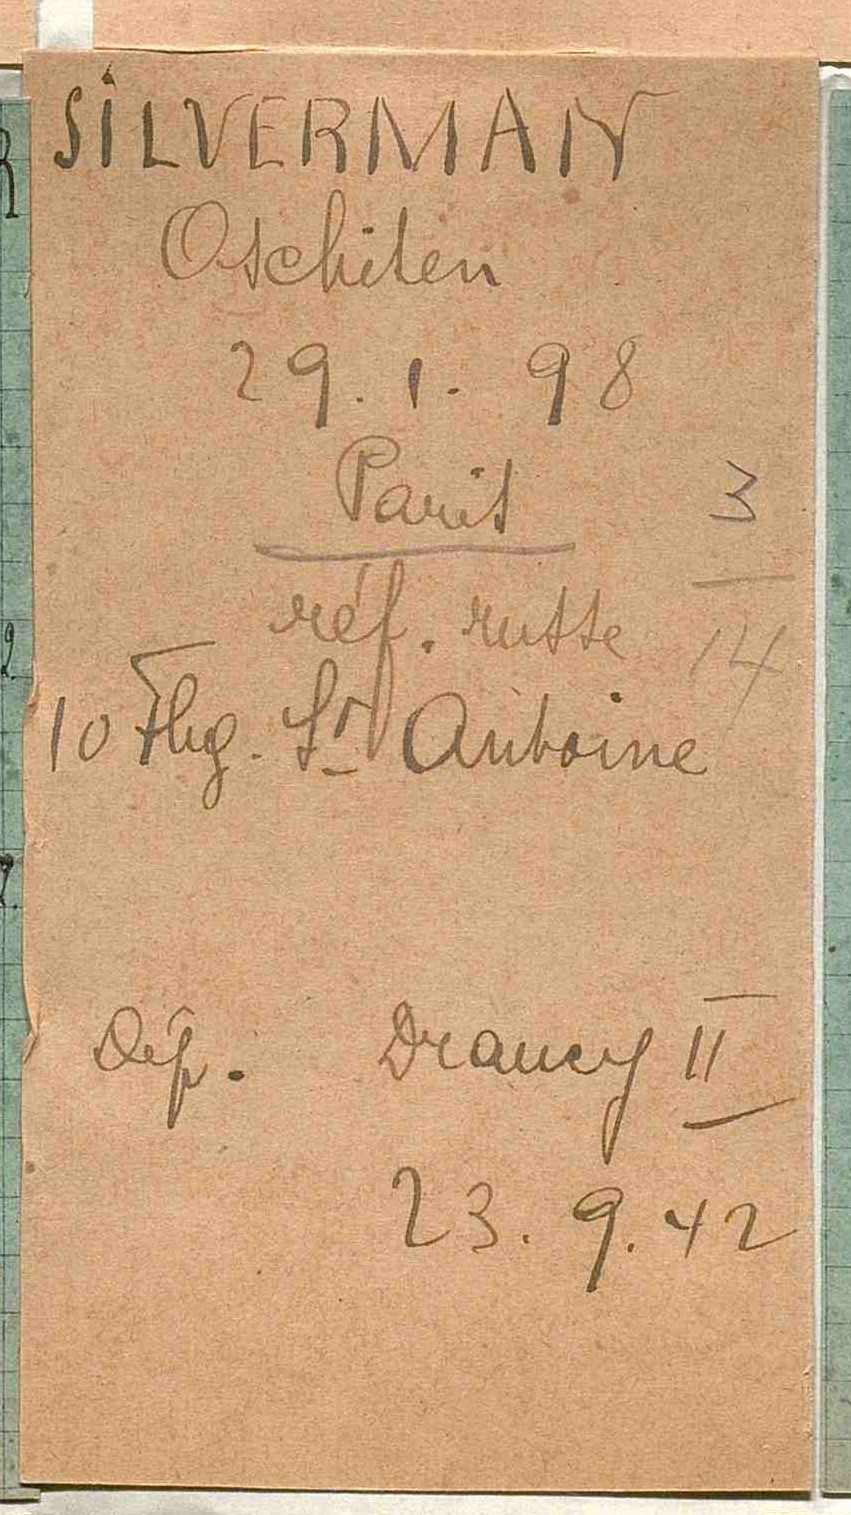 SILVERMAN
Oschiten
29.1.98
Paris
3
réf. russe
14
10 Fbg. St Antoine
Dép. Drancy II
23.9.42